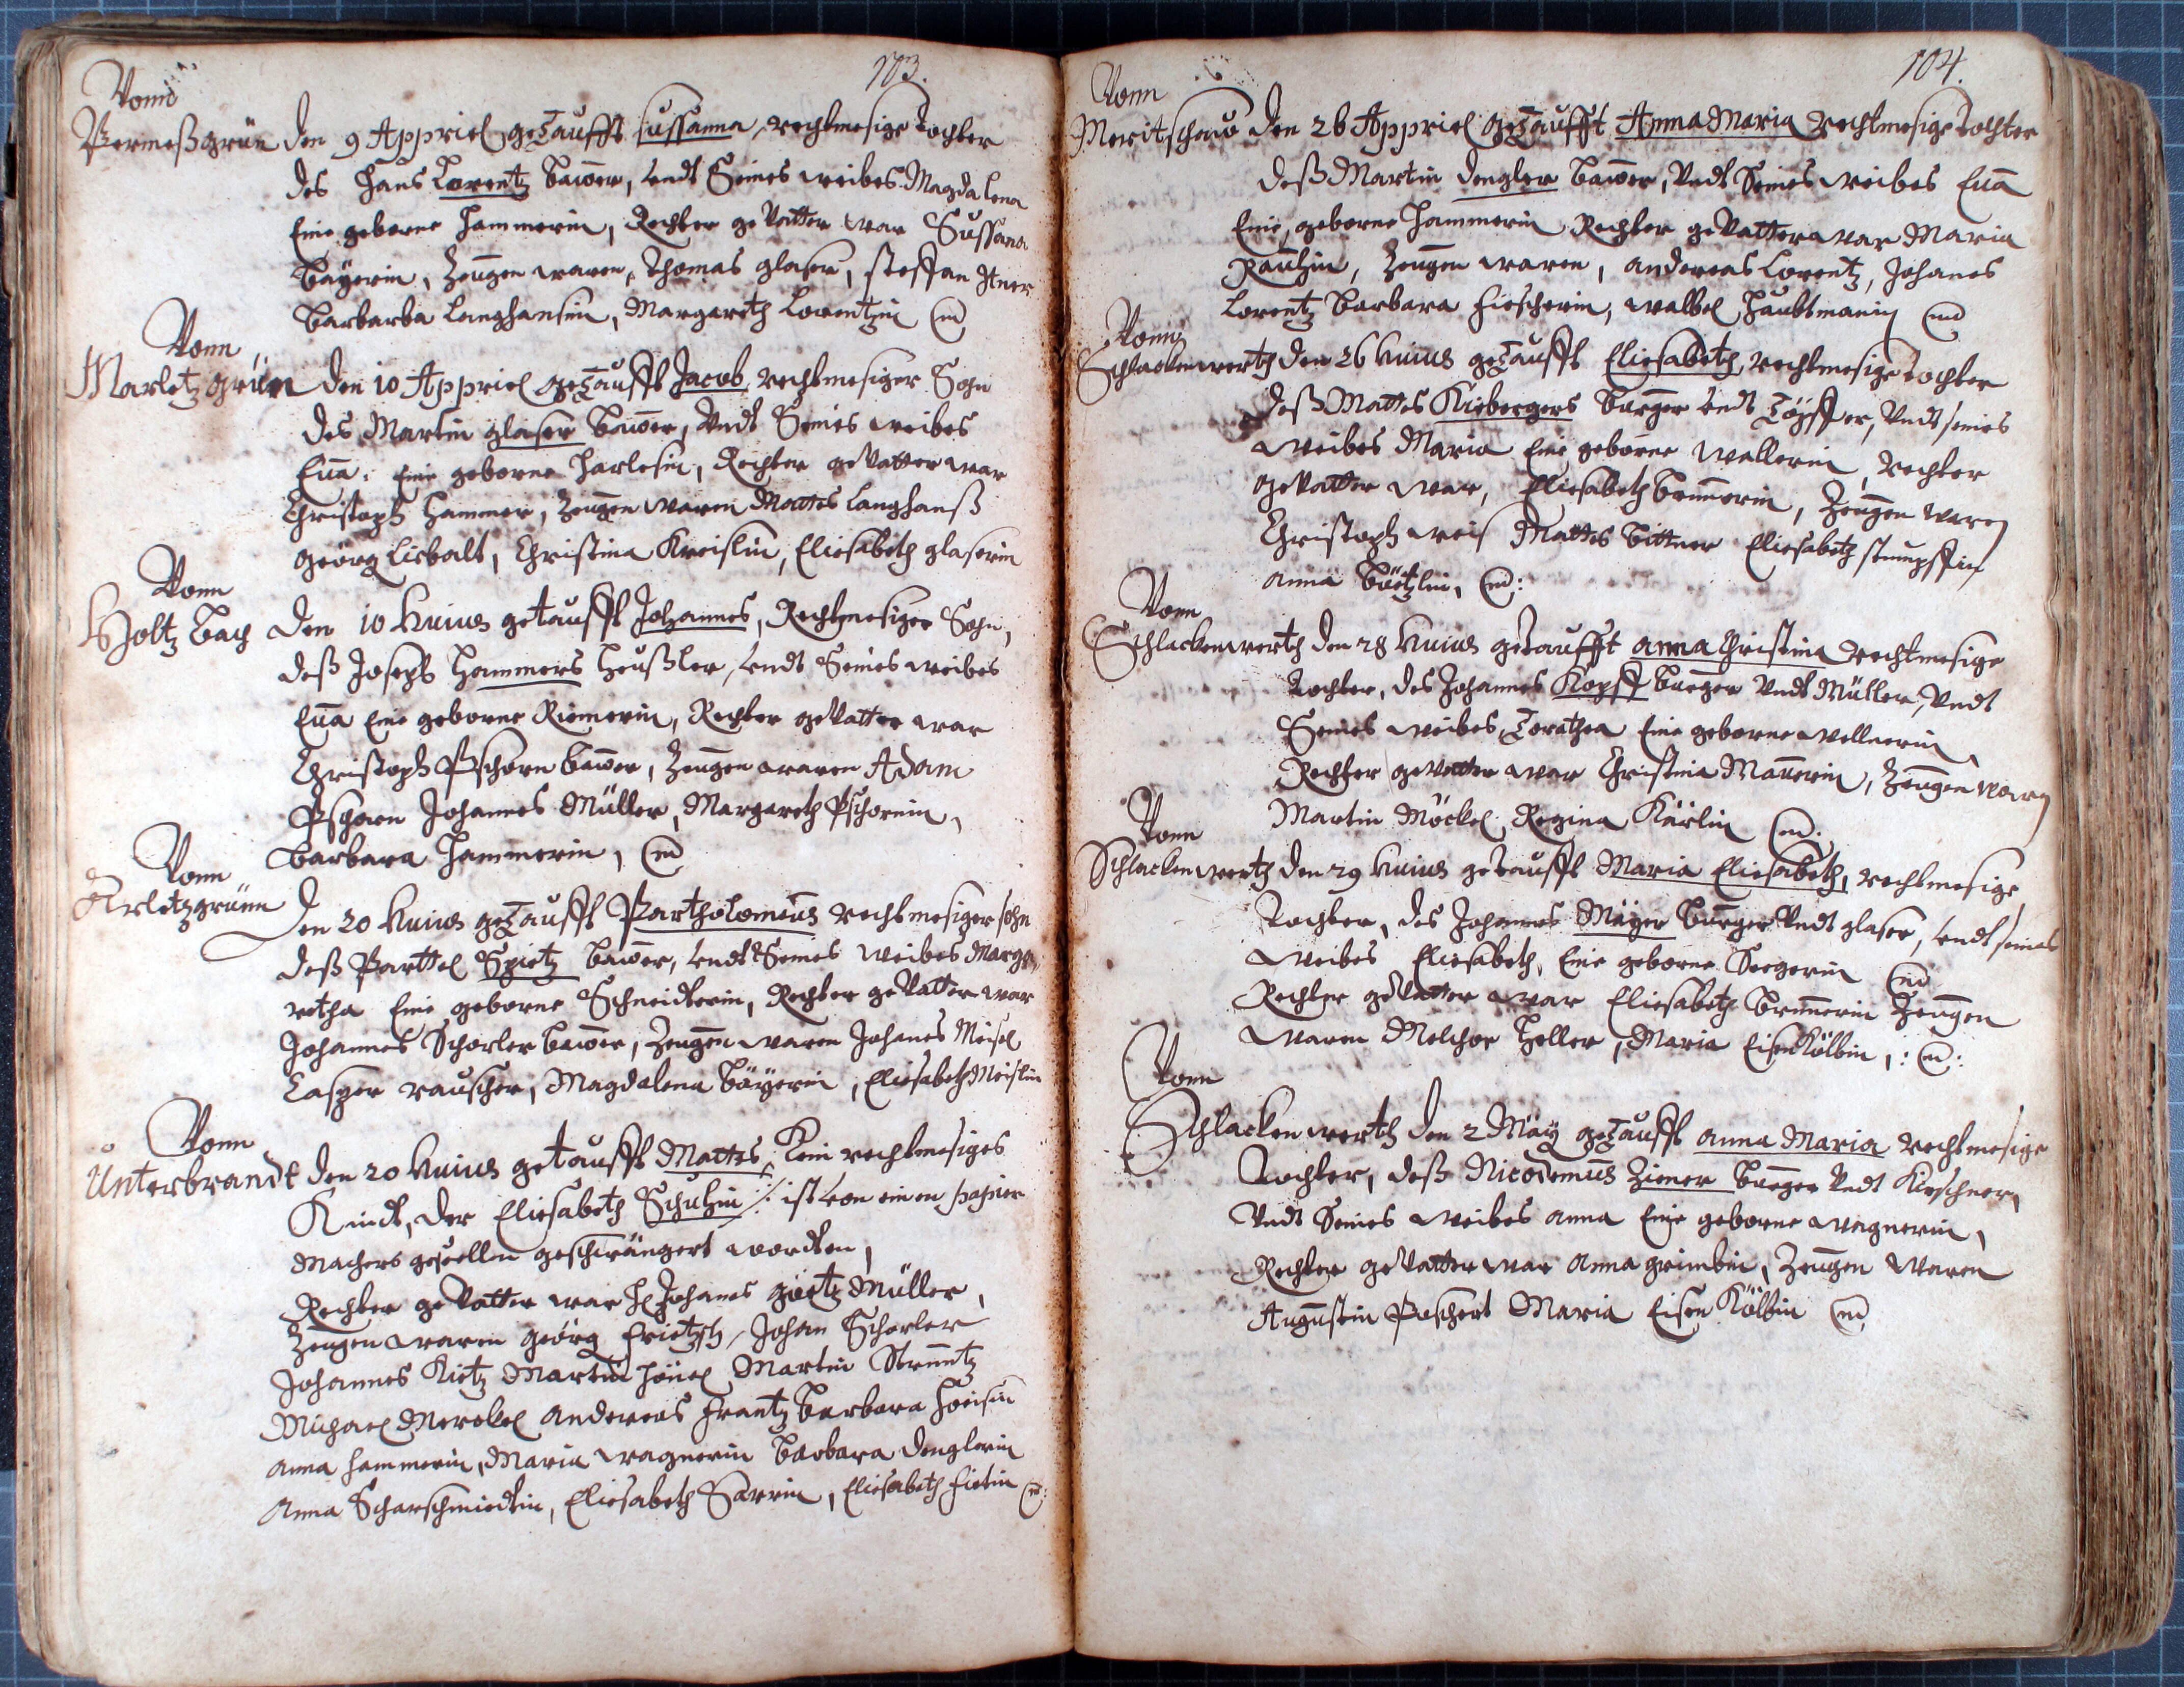 103.
Vonn
Permeßgrün den 9 Appriel getaufft Sussanna, rechtmesige Tochter
des Hans Lorentz Bawer, Vndt Seines weibes Magdalena
Eine geborne Hammerin, Rechter geVatter war Sussana
Bäyerin, Zeugen waren, Thomas glaser, steffan
Barbarba Langhansin, Margareth Lorentzin
Vonn
Marletzgrün den 10 Appriel getaufft Jacob rechtmesiger Sohn
des Martin glaser Bawer, Vndt Seines weibes
Eua. Eine geborne Harlesin, Rechter geVatter war
Christoph Hammer, Zeugen waren Mattes Langhanß
Georg Liebalt, Christina Kreislin, Eliesabeth glaserin
Vonn
Holtz Bach den 10 Huius getaufft Johannes, Rechtmesiger Sohn,
deß Joseph Hammers Heußler, Vndt Seines weibes
Eua Eine geborne Riemerin, Rechter geVatter war
Christoph Pschorn Bawer, Zeugen waren Adam
Pschorn Johannes Müller, Margareth Pschornin,
Barbara Hammerin,
Vonn
Arletzgrünn Den 20 Huius getaufft Partholomeus rechtmesiger sohn
deß Parttel Spietz Bawer, Vndt Seines weibes Marga
retha Eine geborne Schneidterin, Rechter geVatter war
Johannes Schorler Bawer, Zeugen waren Johanes Meisel
Casper rauscher, Magdalena Bäyerin, Eliesabeth Meislin
Vonn
Unterbrandt den 20 Huius getaufft Mattes, Kein rechtmesiges
Kindt, der Eliesabeth Schuhin ist Von einen papier
Machers gesellen geschwängert wordten,
Rechter geVatter war H Johanes Müller,
Zeugen waren Georg Frietzsch, Johan Schorler
Johannes Kietz Martin Martin
Michael Merckel Andereas Frantz Barbara
Anna Hammerin, Maria wagnerin Barbara denglerin
Anna Scharschmiedtin, Eliesabeth Sarrin, Eliesabeth
104.
Vonn
Meritschaw den 26 Appriel getaufft Anna Maria rechtmesige tochter
deß Martin dengler Bawer, Vndt Seines weibes Eua
Eine geborne Hammerin Rechter geVatter war Maria
Zeugen waren, andereas Lorentz, Johanes
Lorentz Barbara Fiescherin, walbel Haubtmanin
Vonn
Schlackenwerth den 26 Huius getaufft Eliesabeth, rechtmesige tochter
deß Mattes Kiebergers Burger Vndt Töpffer, Vndt seines
weibes Maria Eine geborne Wallerin, Rechter
geVatter war, Eliesabeth Brunnerin, Zeugen waren
Christoph weis Mattes Bittner Eliesabeth stumpffin
Anna
Vonn
Schlackenwerth den 28 Huius getaufft anna Christina rechtmesige
Tochter, des Johannes Kopff Burger Vndt Müller, Vndt
Seines weibes Torathea Eine geborne wellnerin,
Rechter geVatter war Christina Maurerin, Zeugen waren
Martin Möckel Regina Kärlin
Vonn
Schlackenwerth den 29 Huius getaufft Maria Eliesabeth, rechtmesige
Tochter, des Johannes Mäyer Burger Vndt glaser, Vndt seines
weibes Eliesabeth, Eine geborne Seegerin
Rechter geVatter war Eliesabeth Brunnerin Zeugen
waren Melchor Heller, Maria Eisenkölbin,
Vonn
Schlackenwerth den 2 Mäy getaufft anna Maria rechtmesige
Tochter, deß Nicodemus Ziener Burger Vndt Kirschner,
Vndt Seines weibes anna Eine geborne wagnerin,
Rechter geVatter war Anna Zeugen Waren
Augustin Peschert Maria Eisen Kölbin